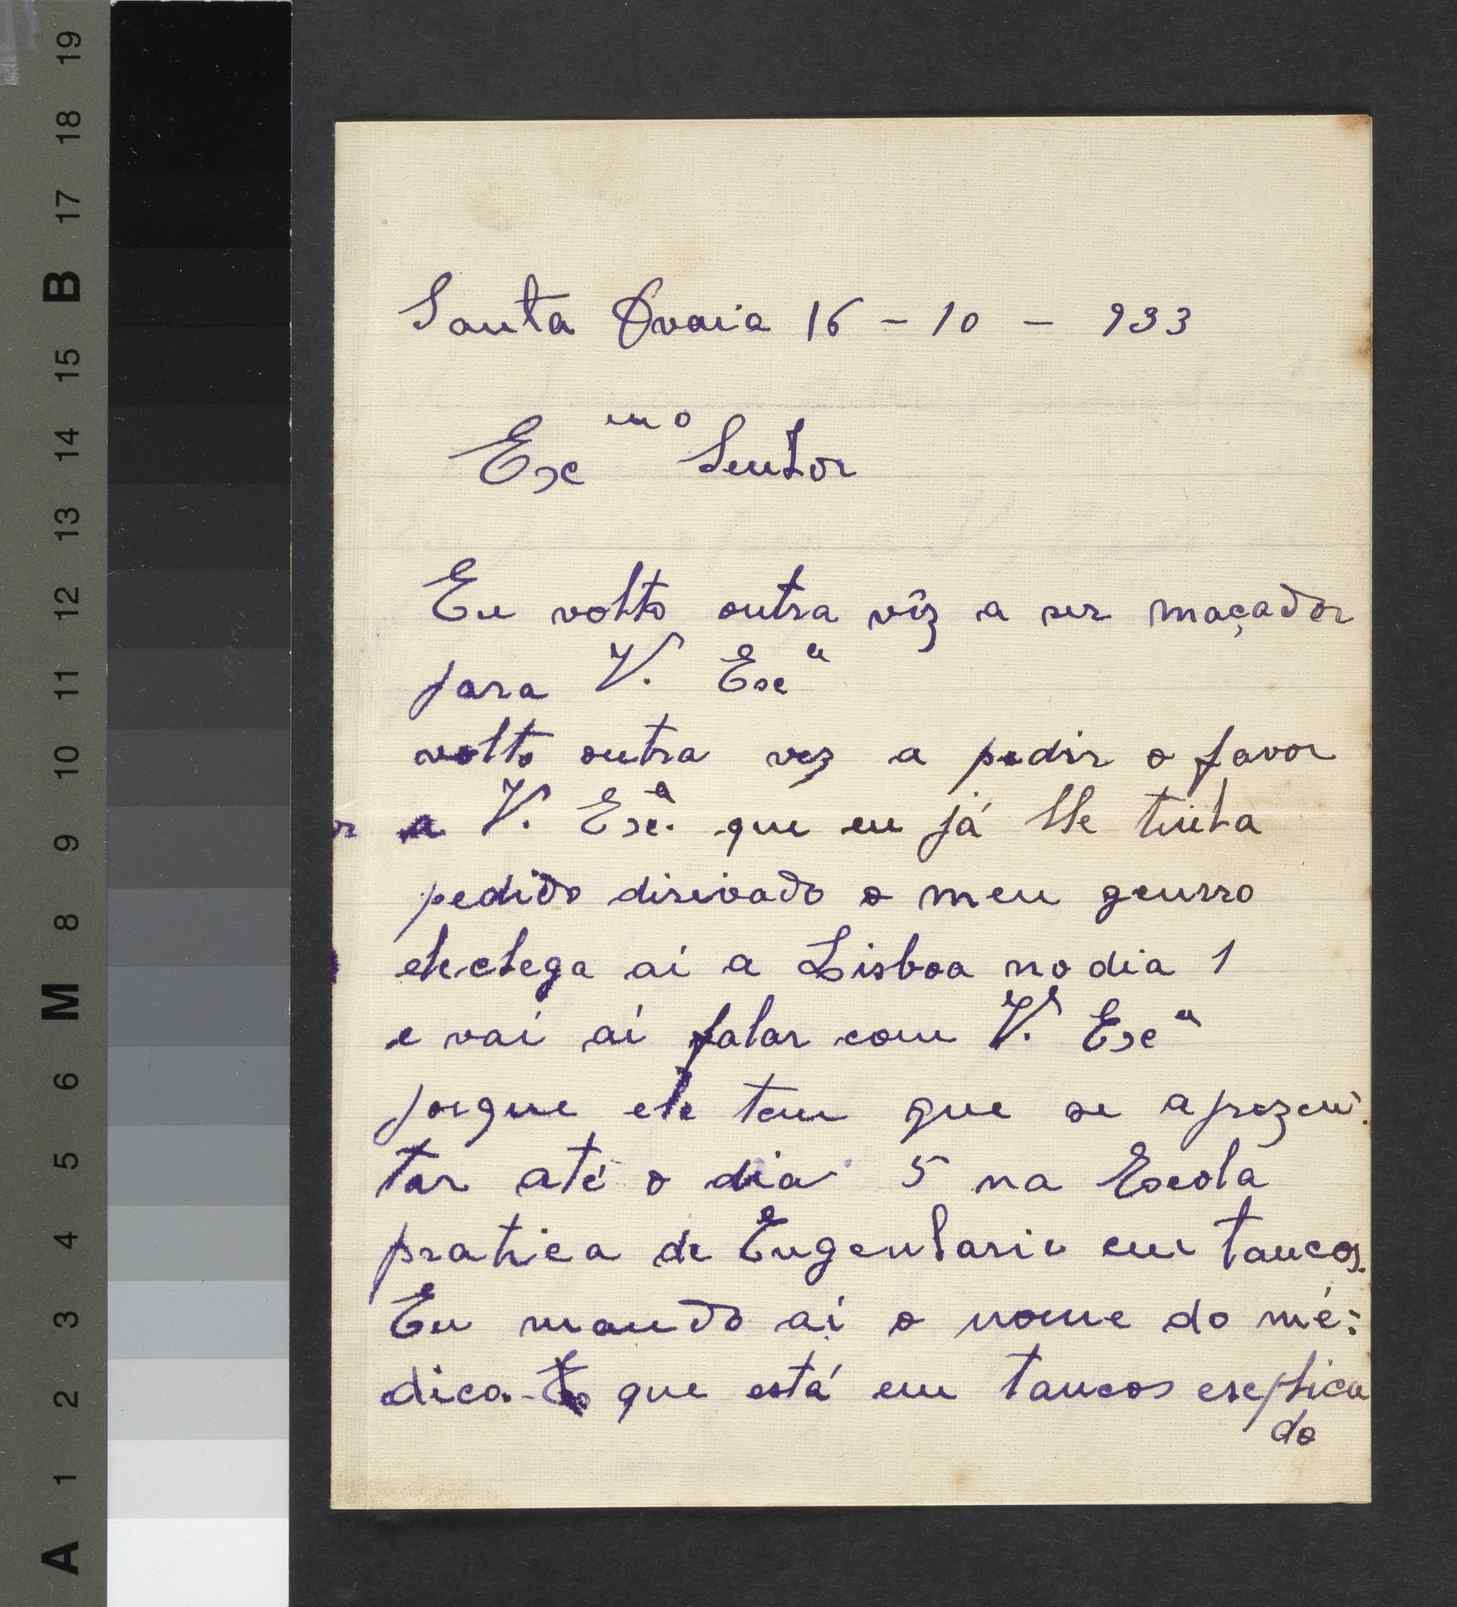 Santa Ovaia 16 - 10 - 933
Exc mo Senhor
Eu volto outra vêz a ser maçador
para V. Exc a
volto outra vez a pedir o favor
a V. Exc.a que eu já lhe tinha
pedido disivado o meu genrro
ele chega aí a Lisboa no dia 1
e vai aí falar com V. Exc a
porque ele tem que se aprezen-
tar até o dia 5 na Escola
pratica de Engenharia em tancos.
Eu mando aí o nome do mé-
dico que está em tancos explica
do
A 1 2 3 4 5 6 M 8 9 10 11 12 13 14 15 B 17 18 19